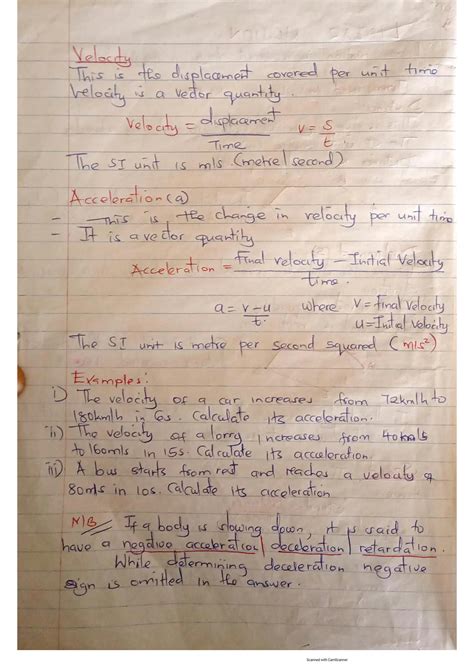 Velocity
This is the displacement covered per unit time
Velocity is a vector quantity.
Velocity = displacement/Time v = s/t.
The SI unit is m/s (metre/second)
Acceleration (a)
- This is the change in velocity per unit time
- It is a vector quantity
Acceleration = Final velocity - Initial Velocity/time.
a = v-u/t. where v = final velocity
u = Initial velocity
The SI unit is metre per second squared (m/s²)
Examples:
i) The velocity of a car increases from 72km/h to
180km/h in 6s. Calculate its acceleration.
ii) The velocity of a lorry increases from
to 160m/s in 15s. Calculate its acceleration.
iii) A bus starts from rest and reaches a velocity of
80m/s in 10s. Calculate its acceleration
N/B If a body is slowing down, it is said to
have a negative acceleration/deceleration/retardation.
While determining deceleration negative
sign is omitted in the answer.
Scanned with CamScanner